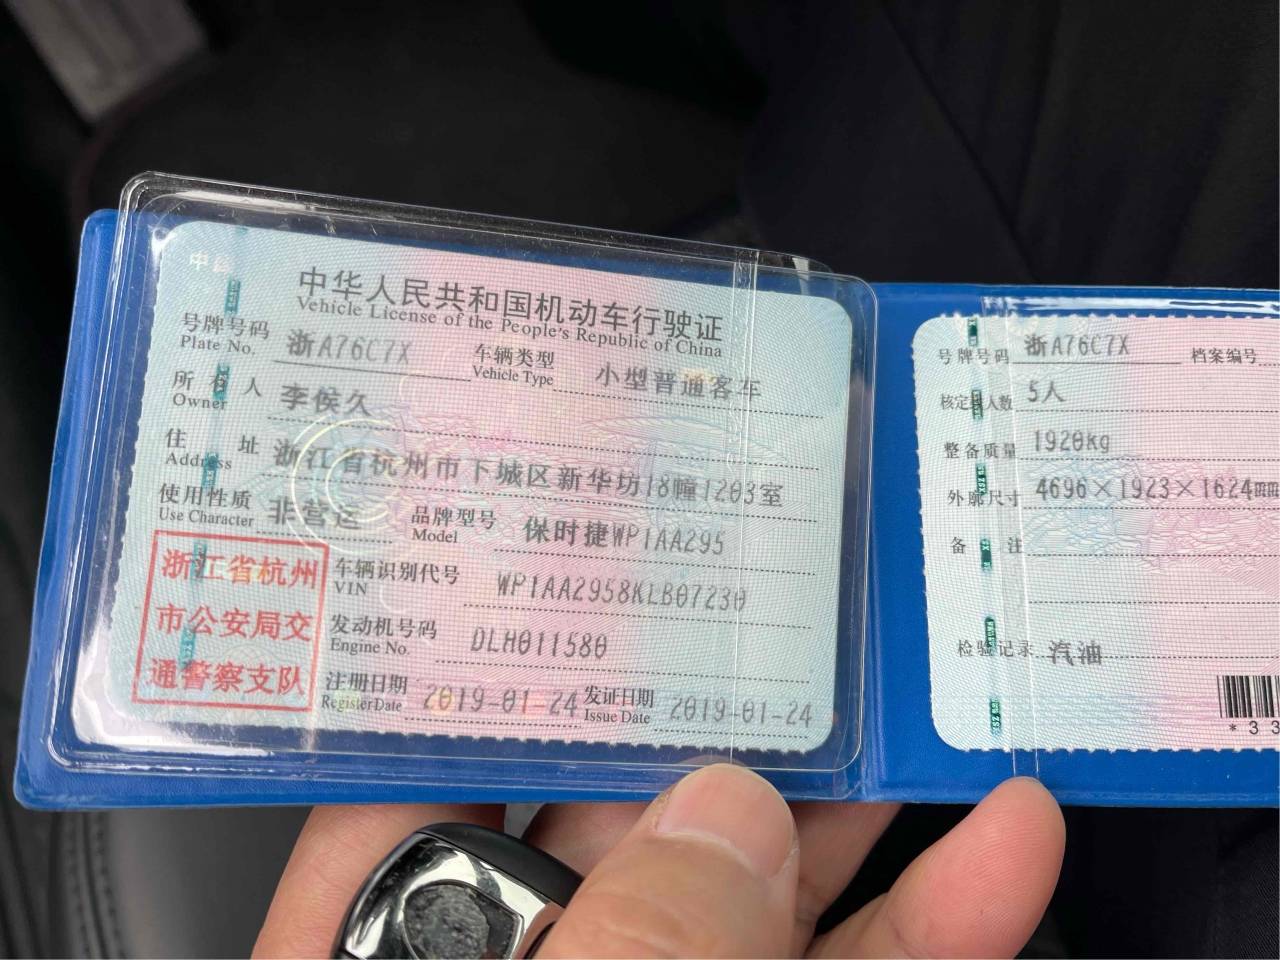 中华人民共和国机动车行驶证
Vehicle License of the People's Republic of China
号牌号码 浙A76C7X 车辆类型 小型普通客车
Plate No. Vehicle Type
所有人 李候久
Owner
住址 浙江省杭州市下城区新华坊18幢1203室
Address
使用性质 非营运 品牌型号 保时捷WP1AA295
Use Character Model
浙江省杭州
市公安局交
通警察支队
车辆识别代号 WP1AA2958KLB07230
VIN
发动机号码 DLH011580
Engine No.
注册日期 2019-01-24 发证日期 2019-01-24
Register Date Issue Date
号牌号码 浙A76C7X 档案编号
核定载人数 5人
整备质量 1920kg
外廓尺寸 4696×1923×1624mm
备注
检验记录 汽油
*33